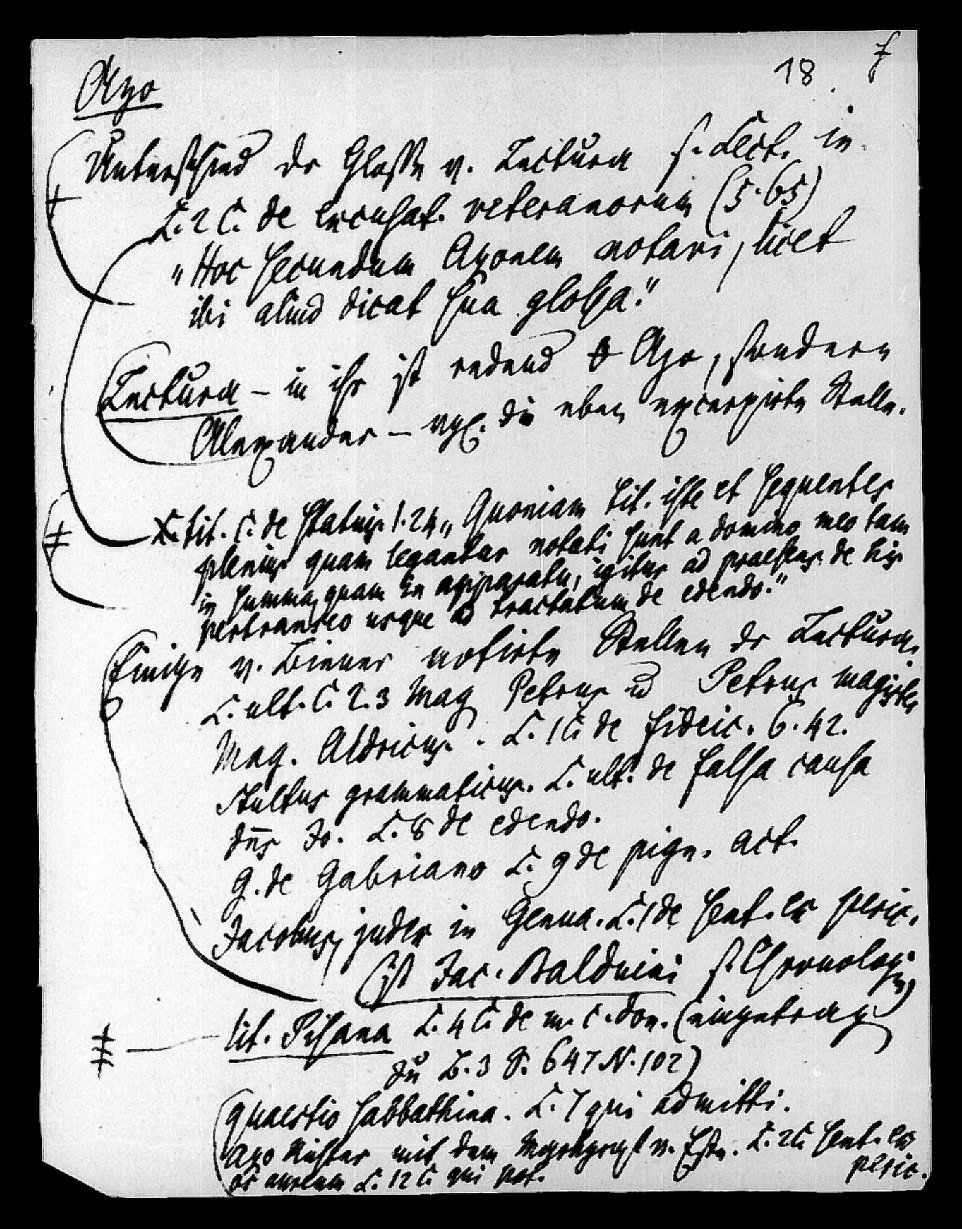 18 f
Azo
Unterschied der Glosse v. Lectura s. Lect. in
L. 2 C. de excusat. veteranorum (5. 65)
"Hoc secundum Azonem notavi, licet
ibi aliud dicat sua glossa."
Lectura – in ihr ist redend Azo, sondern
Alexander – vgl. die eben excerpirte Stelle.
tit. C. de statuis 1. 24 "Quoniam tit. iste et sequentes
plenius quam legantur notati sunt a domino meo tam
in summa quam in apparatu, igitur ad praesens de his
pertranseo usque ad tractatum de edendo."
Einige v. Biener notirte Stellen der Lectura.
L. ult. C. 2. 3 Mag Petrus Petrus magister
Mag. Aldricus. L. 1 C. de fideic. 6. 42.
stultus grammaticus. L. ult. de falsa causa
dns Jo. L. 8 de edendo.
G. de Gabriano L. 9 de pign. act.
Jacobus judex in Genua. L. 1 de sent. ex peric.
(ist Jac. Balduini s. Chronologie)
lit. Pisana L. 4 C. de in. c. don. (eingetragen
zu B. 3 S. 647 N. 102)
Quaestio sabbathina. L. 7 qui admitti.
Azo Richter mit dem v. L. 2 C. sent. ex
peric.
L. 12 C. qui pot.